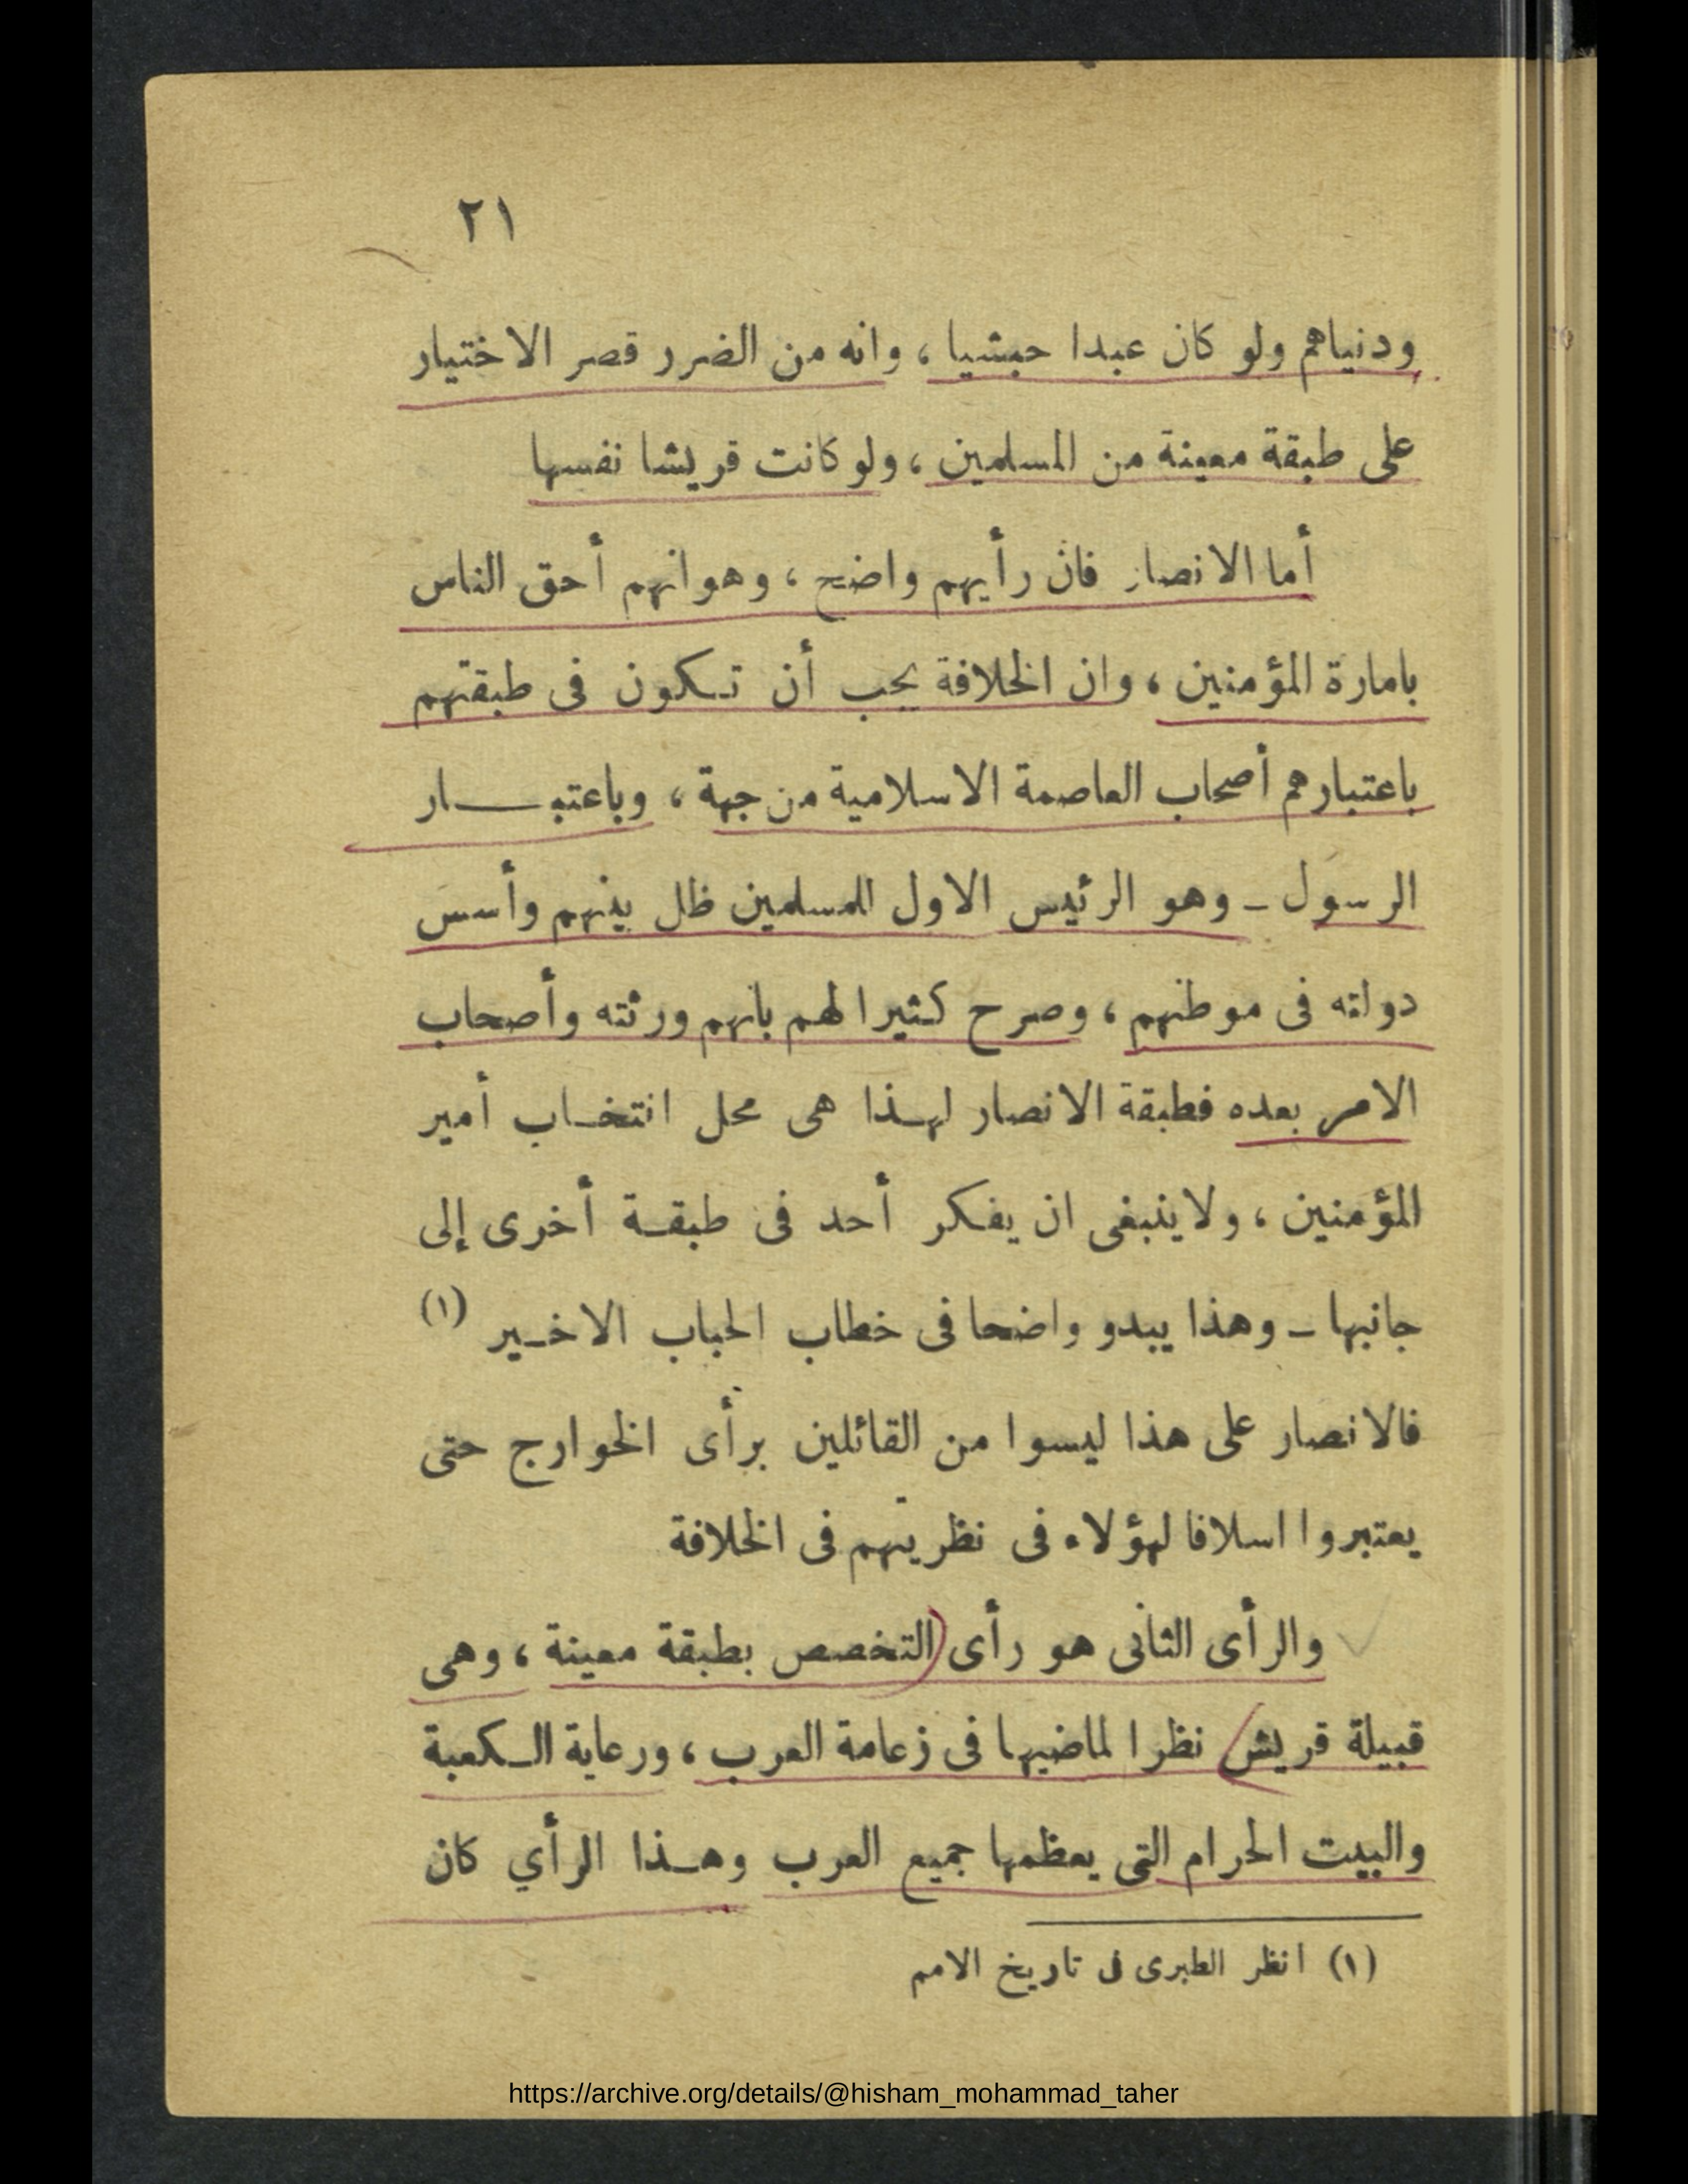 ٢١
ودنياهم ولو كان عبدا حبشيا ، وانه من الضرر قصر الاختيار
على طبقة معينة من المسلمين ، ولو كانت قريشا نفسها
أما الانصار فان رأيهم واضح ، وهو انهم أحق الناس
بامارة المؤمنين ، وان الخلافة يجب أن تـكون فى طبقتهم
باعتبارهم أصحاب العاصمة الاسلامية من جهة ، وباعتبـــار
الرسول ـ وهو الرئيس الاول للمسلمين ظل بينهم وأسس
دولته فى موطنهم ، وصرح كثيرا لهم بانهم ورثته وأصحاب
الامر بعده فطبقة الانصار لهـذا هى محل انتخـاب أمير
المؤمنين ، ولا ينبغى ان يفكر أحد فى طبقـة أخرى إلى
جانبها ـ وهذا يبدو واضحا فى خطاب الحباب الاخـير (١)
فالانصار على هذا ليسوا من القائلين برأى الخوارج حتى
يعتبروا اسلافا لهؤلاء فى نظريتهم فى الخلافة
والرأى الثانى هو رأى (التخصص بطبقة معينة ، وهى
قبيلة قريش) نظرا لماضيها فى زعامة العرب ، ورعاية الـكعبة
والبيت الحرام التى يعظمها جميع العرب وهـذا الرأي كان
(١) انظر الطبرى فى تاريخ الامم
https://archive.org/details/@hisham_mohammad_taher